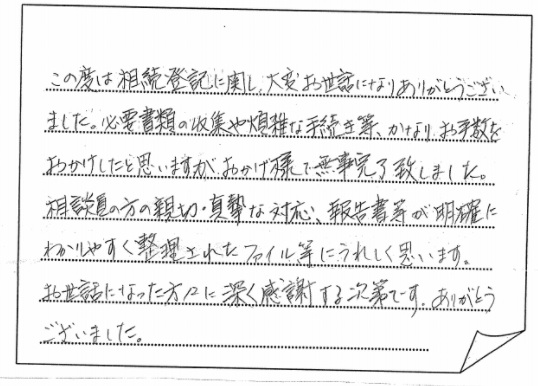 この度は相続登記に関し、大変お世話になりありがとうござい
ました。必要書類の収集や煩雑な手続き等、かなりお手数を
おかけしたと思いますが、おかげ様で無事完了致しました。
相談員の方の親切・真摯な対応、報告書等が明確に
わかりやすく整理されたファイル等にうれしく思います。
お世話になった方々に深く感謝する次第です。ありがとう
ございました。